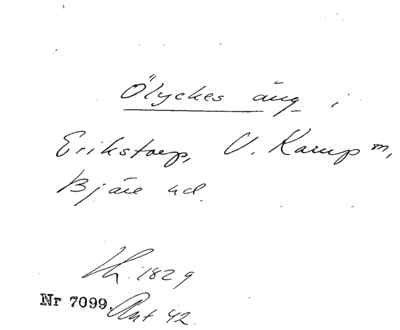 Ölyckes äng i
Erikstorp, V. Karup sn,
Bjäre hd.
Lh. 1829
Nr 7099. Akt 42.